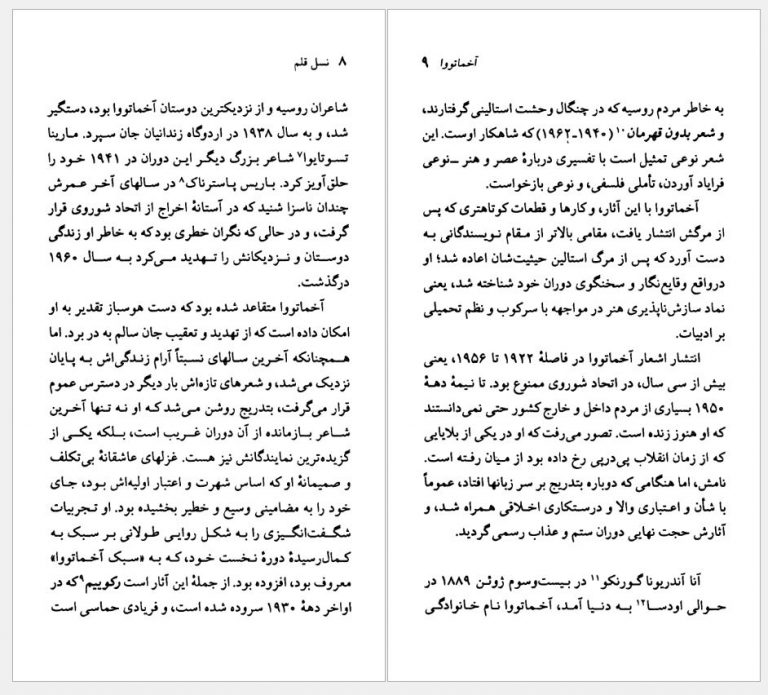 ۸ نسل قلم
شاعران روسیه و از نزدیکترین دوستان آخماتووا بود، دستگیر
شد، و به سال ۱۹۳۸ در اردوگاه زندانیان جان سپرد. مارینا
تسوتایوا۷ شاعر بزرگ دیگر این دوران در ۱۹۴۱ خود را
حلق‌آویز کرد. باریس پاسترناک۸ در سالهای آخر عمرش
چندان ناسزا شنید که در آستانهٔ اخراج از اتحاد شوروی قرار
گرفت، و در حالی که نگران خطری بود که به خاطر او زندگی
دوستان و نزدیکانش را تهدید می‌کرد به سال ۱۹۶۰
درگذشت.
آخماتووا متقاعد شده بود که دست هوسباز تقدیر به او
امکان داده است که از تهدید و تعقیب جان سالم به در برد. اما
همچنانکه آخرین سالهای نسبتاً آرام زندگی‌اش به پایان
نزدیک می‌شد، و شعرهای تازه‌اش بار دیگر در دسترس عموم
قرار می‌گرفت، بتدریج روشن می‌شد که او نه تنها آخرین
شاعر بازمانده از آن دوران غریب است، بلکه یکی از
گزیده‌ترین نمایندگانش نیز هست. غزلهای عاشقانهٔ بی‌تکلف
و صمیمانهٔ او که اساس شهرت و اعتبار اولیه‌اش بود، جای
خود را به مضامینی وسیع و خطیر بخشیده بود. او تجربیات
شگفت‌انگیزی را به شکل روایی طولانی بر سبک به
کمال‌رسیدهٔ دورهٔ نخست خود، که به «سبک آخماتووا»
معروف بود، افزوده بود. از جملهٔ این آثار است رکوییم۹ که در
اواخر دههٔ ۱۹۳۰ سروده شده است، و فریادی حماسی است
آخماتووا ۹
به خاطر مردم روسیه که در چنگال وحشت استالینی گرفتارند،
و شعر بدون قهرمان۱۰ (۱۹۴۰-۱۹۶۲) که شاهکار اوست. این
شعر نوعی تمثیل است با تفسیری دربارهٔ عصر و هنر ــنوعی
فرایاد آوردن، تأملی فلسفی، و نوعی بازخواست.
آخماتووا با این آثار، و کارها و قطعات کوتاهتری که پس
از مرگش انتشار یافت، مقامی بالاتر از مقام نویسندگانی به
دست آورد که پس از مرگ استالین حیثیت‌شان اعاده شد؛ او
درواقع وقایع‌نگار و سخنگوی دوران خود شناخته شد، یعنی
نماد سازش‌ناپذیری هنر در مواجهه با سرکوب و نظم تحمیلی
بر ادبیات.
انتشار اشعار آخماتووا در فاصلهٔ ۱۹۲۲ تا ۱۹۵۶، یعنی
بیش از سی سال، در اتحاد شوروی ممنوع بود. تا نیمهٔ دههٔ
۱۹۵۰ بسیاری از مردم داخل و خارج کشور حتی نمی‌دانستند
که او هنوز زنده است. تصور می‌رفت که او در یکی از بلایایی
که از زمان انقلاب پی‌درپی رخ داده بود از میان رفته است.
نامش، اما هنگامی که دوباره بتدریج بر سر زبانها افتاد، عموماً
با شأن و اعتباری والا و درستکاری اخلاقی همراه شد، و
آثارش حجت نهایی دوران ستم و عذاب رسمی گردید.
آنا آندریونا گورنکو۱۱ در بیست‌وسوم ژوئن ۱۸۸۹ در
حوالی اودسا۱۲ به دنیا آمد، آخماتووا نام خانوادگی